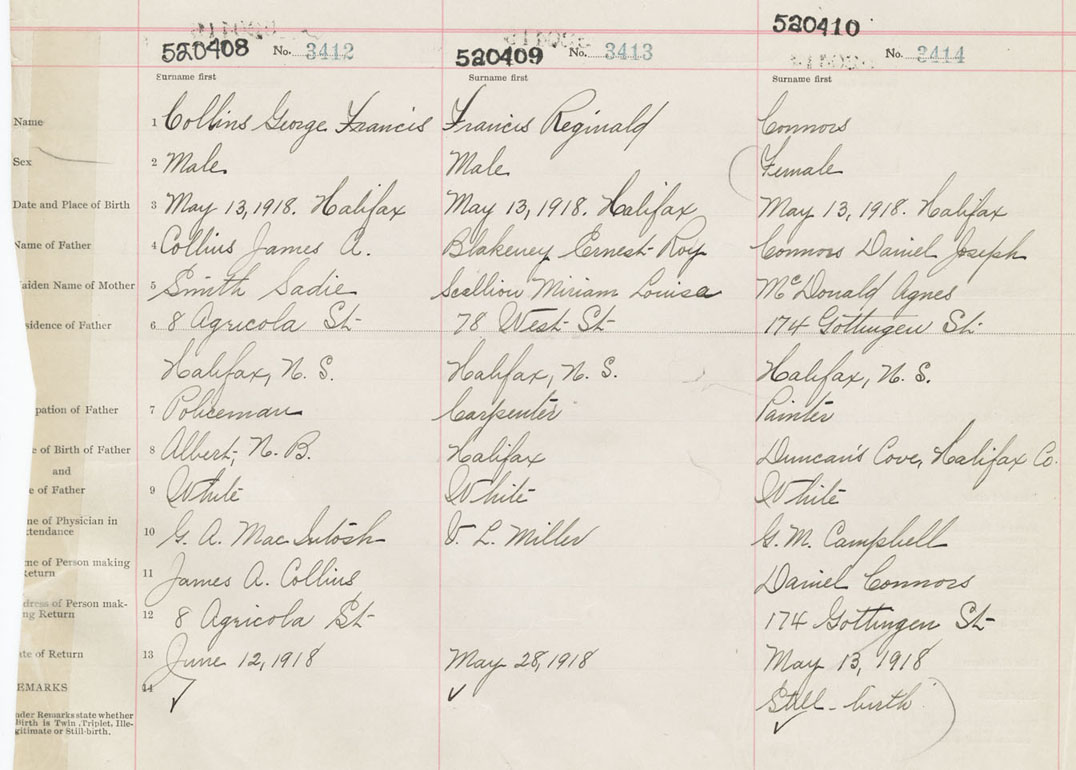 520410
520408 No. 3412 520409 No. 3413 No. 3414
Surname first Surname first Surname first
Name 1 Collins George Francis Francis Reginald Connors
Sex 2 Male Male Female
Date and Place of Birth 3 May 13, 1918. Halifax May 13, 1918. Halifax May 13, 1918. Halifax
Name of Father 4 Collins James A. Blakeney Ernest Roy Connors Daniel Joseph
aiden Name of Mother 5 Smith Sadie Scallion Miriam Louisa McDonald Agnes
sidence of Father 6 8 Agricola St 78 West St 174 Gottingen St
Halifax, N. S. Halifax, N. S. Halifax, N. S.
pation of Father 7 Policeman Carpenter Painter
e of Birth of Father 8 Albert, N. B. Halifax Duncan's Cove, Halifax Co.
and
e of Father 9 White White White
me of Physician in
ttendance 10 G. A. MacIntosh L. Miller G. M. Campbell
me of Person making
Return 11 James A. Collins Daniel Connors
dress of Person mak-
ng Return 12 8 Agricola St 174 Gottingen St
ate of Return 13 June 12, 1918 May 28, 1918 May 13, 1918
EMARKS 14 ✓ ✓ Still-birth ✓
nder Remarks state whether
Birth is Twin, Triplet, Ille-
gitimate or Still-birth.